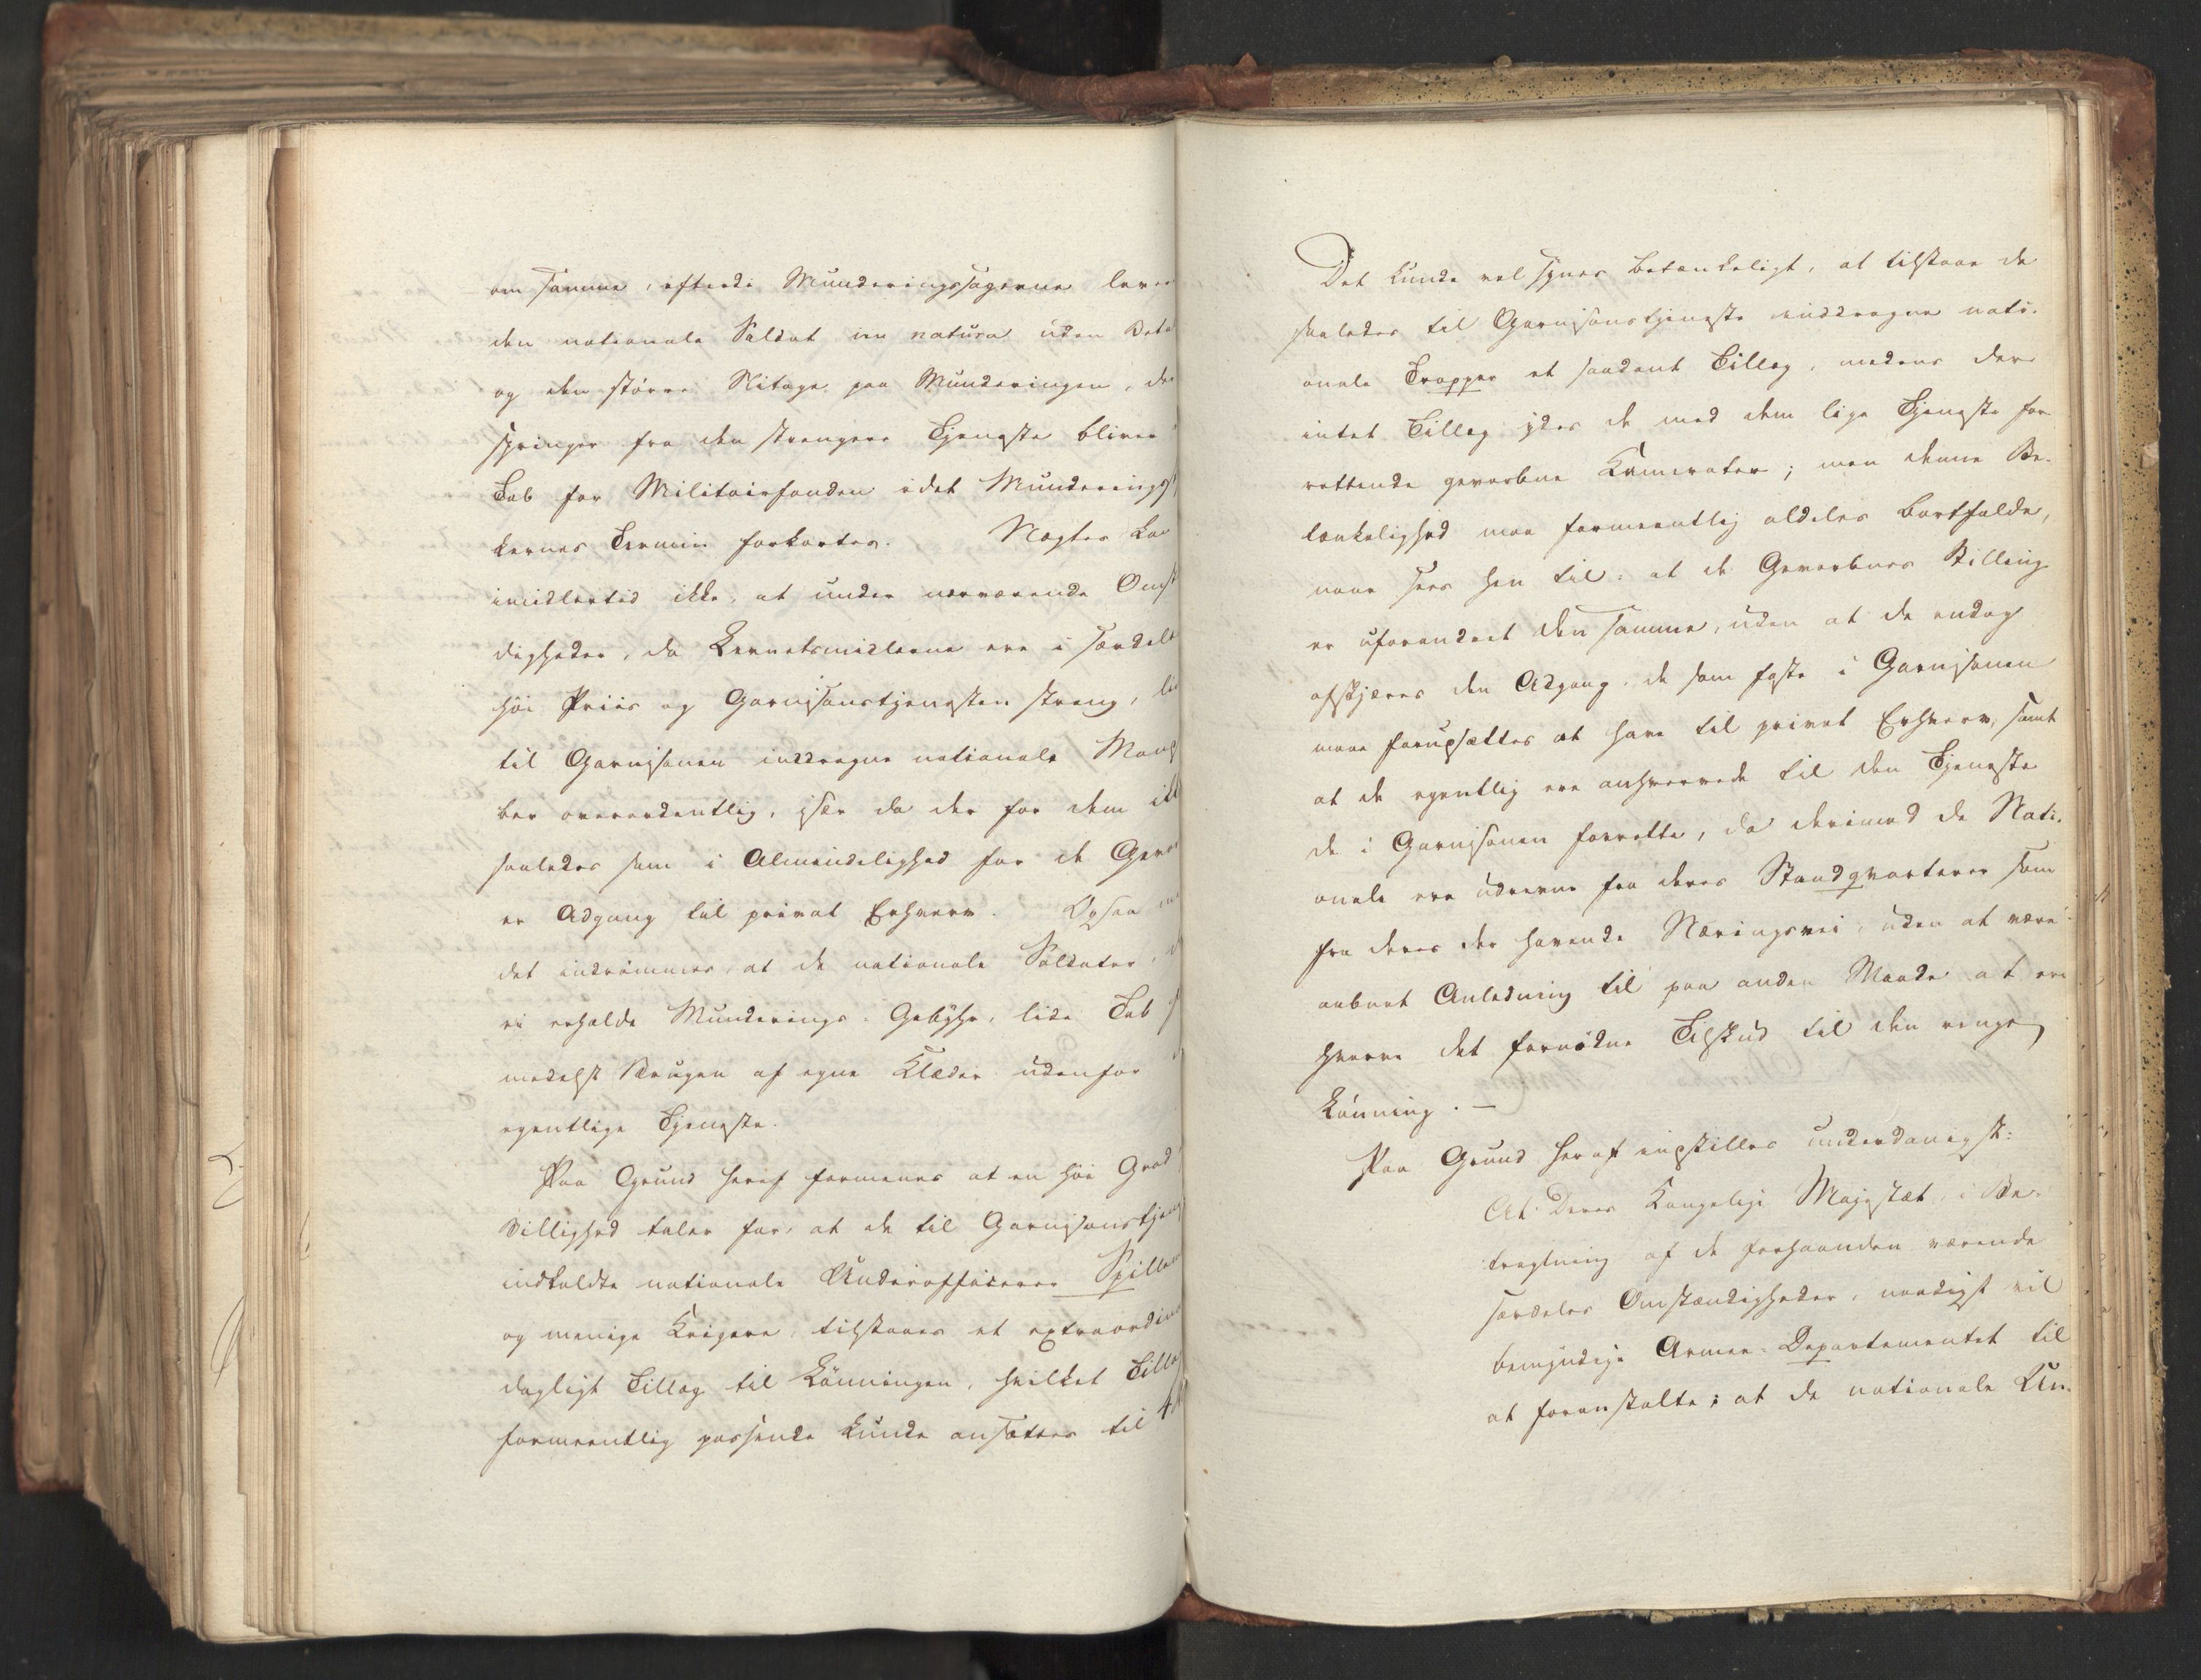 om samme, efterdi Munderingssagerne lever
den nationale Soldat in natura uden Beta
og den större Slitage paa Munderingen, der
springer fra den strengere Tjeneste bliver
Tab for Militairfonden idet Munderings
kernes Termin forkortes. Nægtes kan
imidlertid ikke, at under nærværende Omst
digheder, da Levnetsmidlerne ere i særdeles
höi Priis og Garnisonstjenesten streng,
til Garnisonen inddragne nationale Mang
ber overordentlig, især da der for dem ikk
saaledes som i Almindelighed for de Gevor
er Adgang til privat Erhverv. Ogsaa
det indrömmes, at de nationale Soldater,
ei erholde Munderings-Gebyhr, lide Tab
medelst Brugen af egne Klæder udenfor
egentlige Tjeneste.
Paa Grund heraf formenes at en höi Grad
Billighed taler for, at de til Garnisonstjene
indkaldte nationale Underofficerer Spillem
og menige Krigere, tilstaaes et extraordin
dagligt Tillæg til Lönningen, hvilket Tillæg
formeentlig passende kunde ansættes til 4
Det kunde vel synes betænkeligt, at tilstaae de
saaledes til Garnisonstjeneste inddragne nati-
onale Tropper et saadant Tillæg, medens der
intet Tillæg ydes de med dem lige Tjeneste for-
rettende gevorbne Kamerater; men denne Be-
tænkelighed maa formeentlig aldeles bortfalde,
naar sees hen til: at de Gevorbnes Stilling
er uforandret den samme, uden at de endog
afskjæres den Adgang, de som faste i Garnisonen
maae forudsættes at have til privat Erhverv, samt
at de egentlig ere anhvervede til den Tjeneste
de i Garnisonen forrette, da derimod de Nati-
onale ere udrevne fra deres Standqvarterer som
fra deres der havende Næringsvei, uden at være
aabnet Anledning til paa anden Maade at er-
hverve det fornödne Tilskud til den ringe
Lönning. —
Paa Grund heraf indstilles underdanigst:
At Deres Kongelige Majestæt, i Be-
tragtning af de forhaanden værende
særdeles Omstændigheder, naadigst vil
bemyndige Armee-Departementet til
at foranstalte; at de nationale Un-